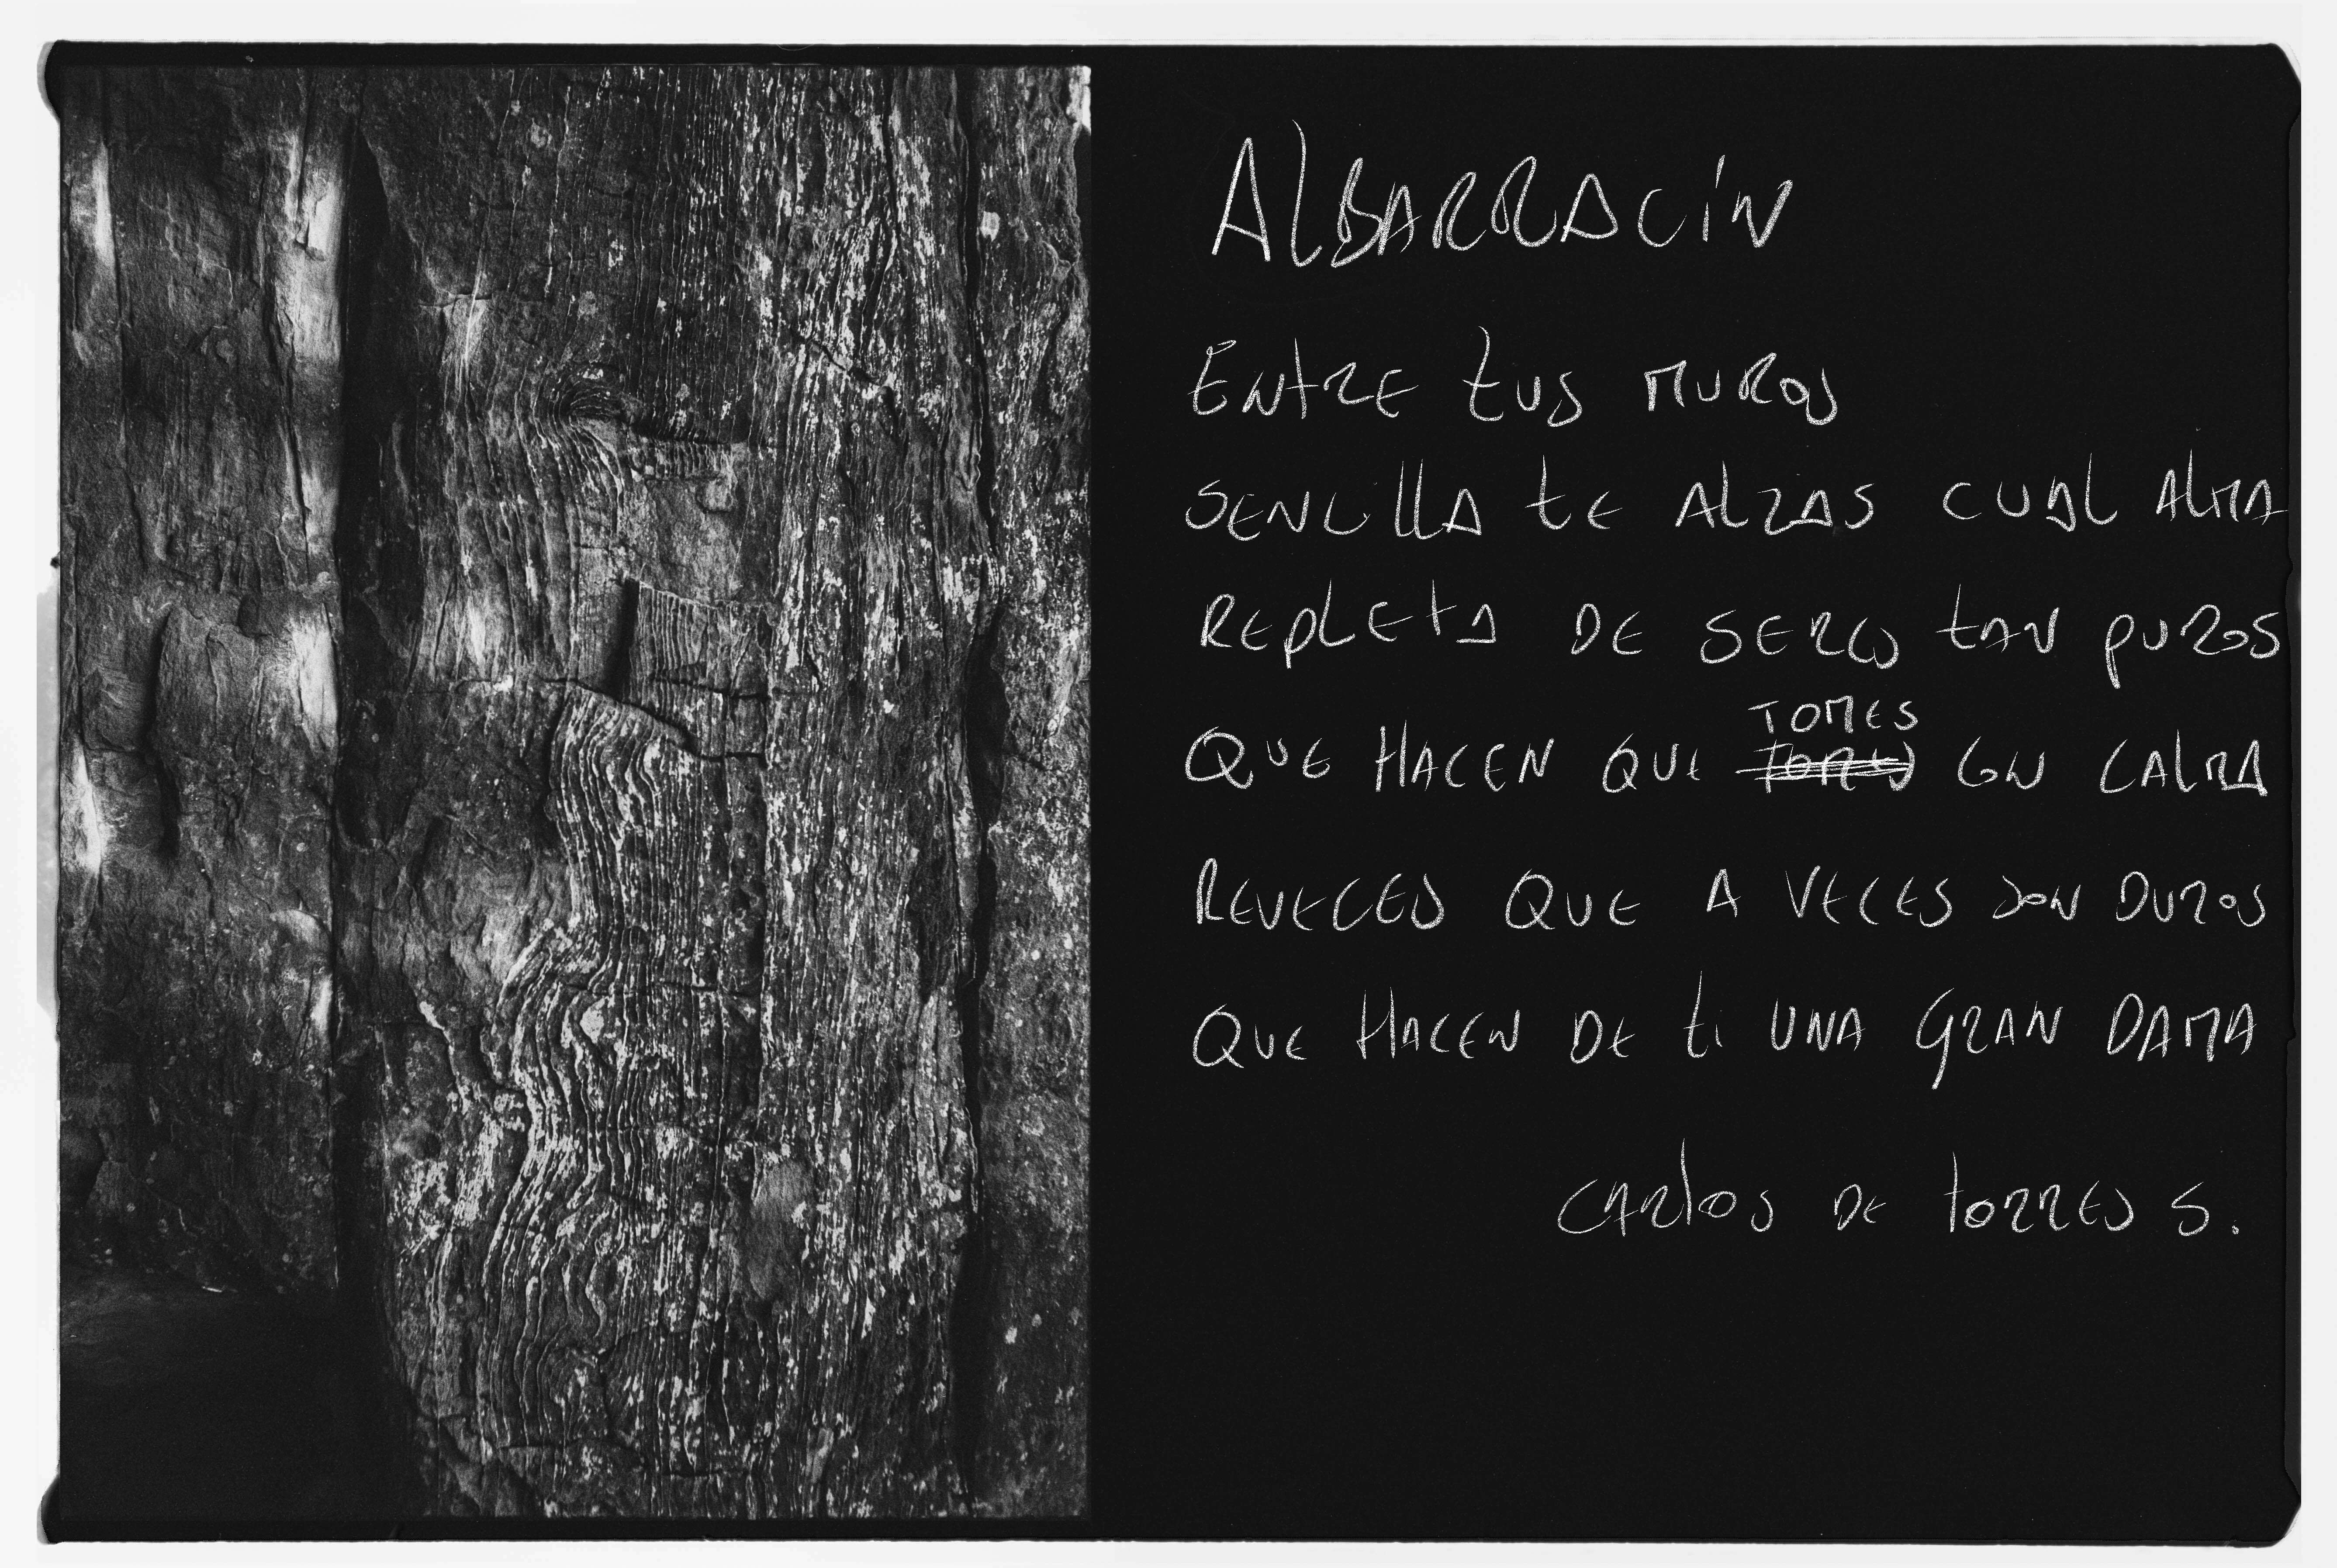 ALBARRACÍN
ENTRE TUS MUROS
SENCILLA TE ALZAS CUAL ALMA
REPLETA DE SERES TAN PUROS
TOMES
QUE HACEN QUE CON CALMA
REVECES QUE A VECES SON DUROS
QUE HACEN DE TI UNA GRAN DAMA
CARLOS DE TORRES S.